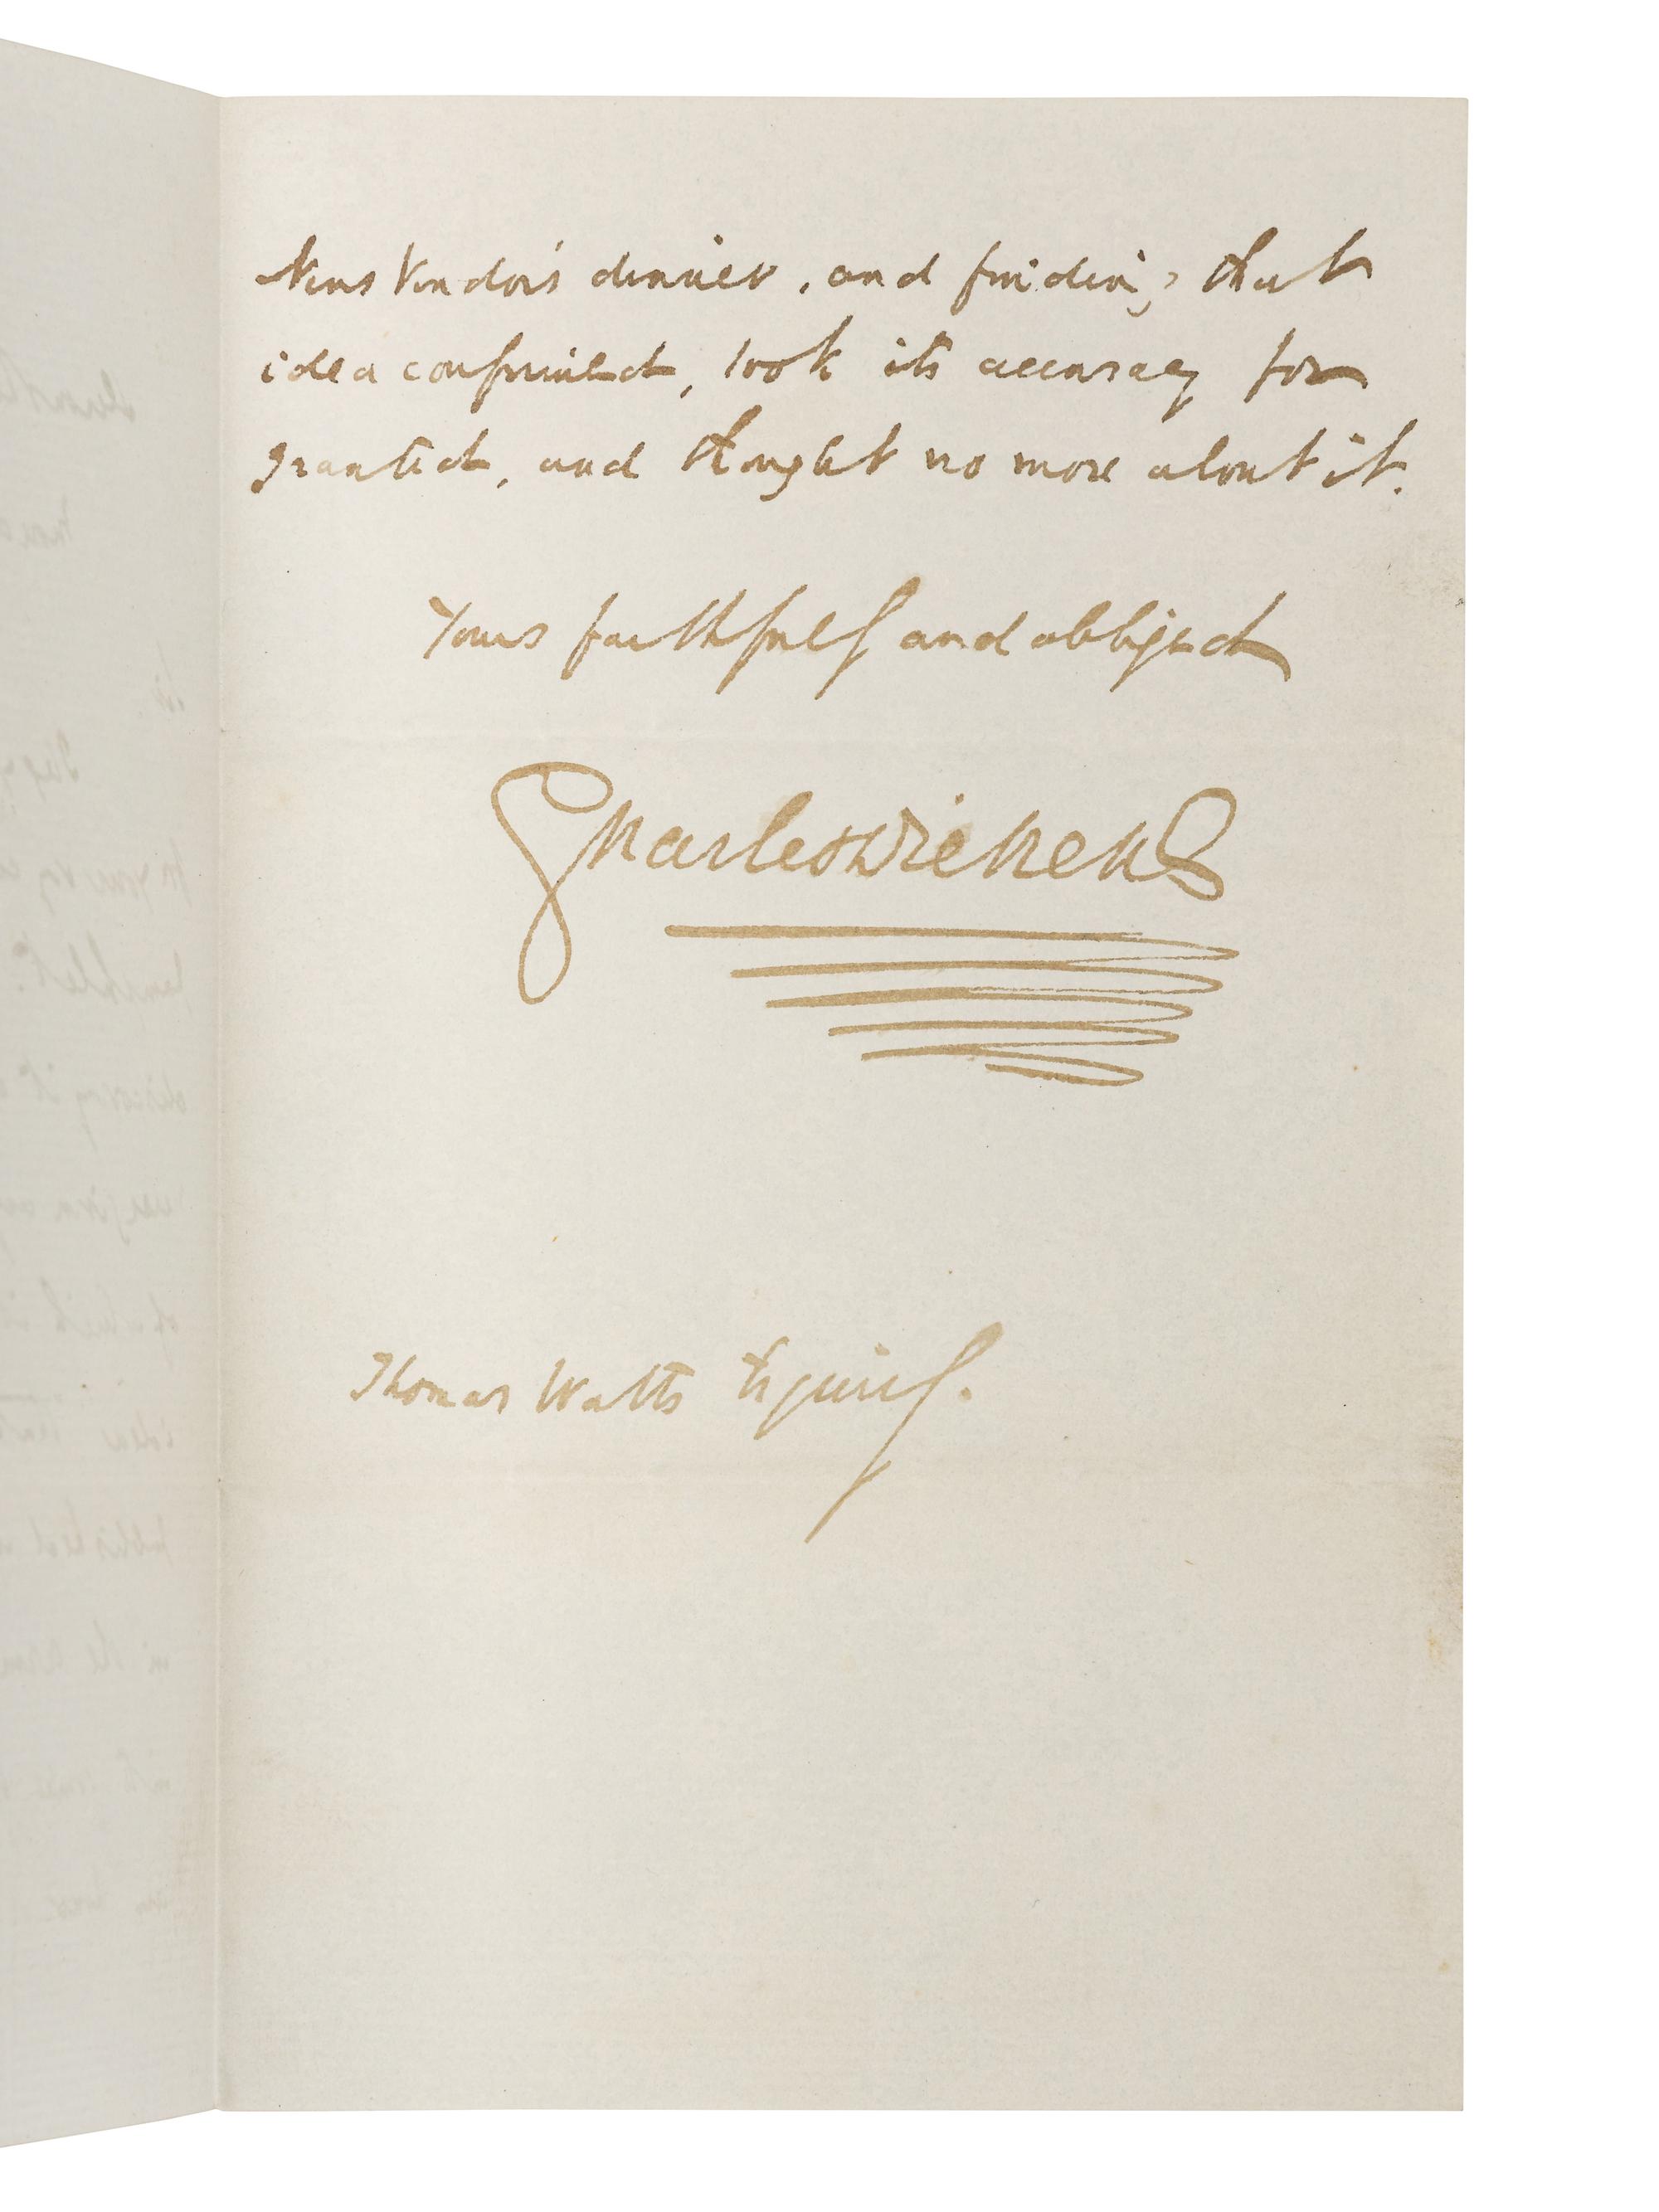 News Vendors' dinner, and finding that
idea confirmed, took its accuracy for
granted, and thought no more about it.
Yours faithfully and obliged
Charles Dickens
Thomas Watts Esquire.